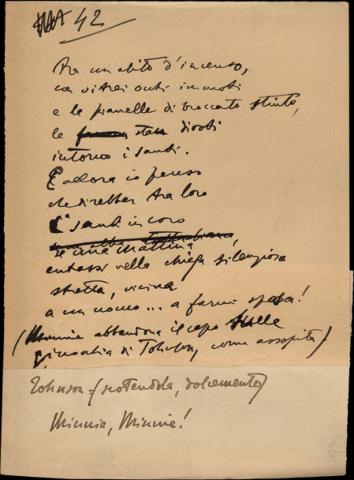 42
Ha un abito d'incenso,
con vitrei occhi immoti
e le pianelle di broccato stinto,
le stan divoti
intorno i santi.
E allora io penso
che direbber tra loro
i santi in coro
se una mattina,
entrassi nella chiesa silenziosa
stretta, vicina
a un uomo... a farmi sposa!
(Minnie abbandona il capo sulle
ginocchia di Johnson, come assopita)
Johnson - (scotendola, dolcemente)
Minnie, Minnie!